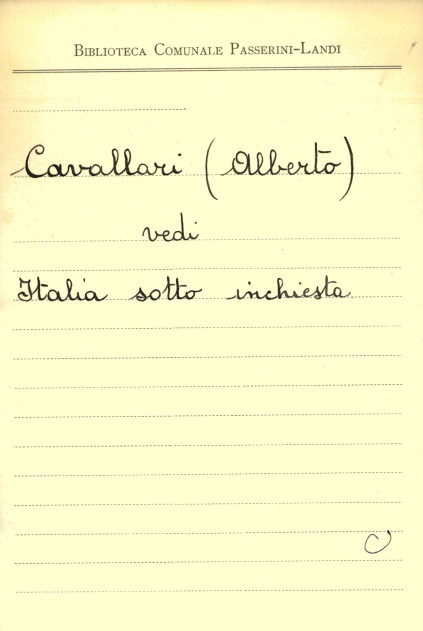 Biblioteca Comunale Passerini-Landi
Cavallari (Alberto)
vedi
Italia sotto inchiesta